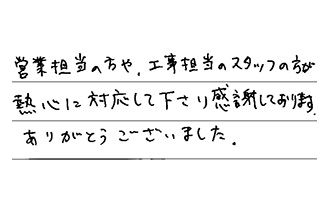 営業担当の方や、工事担当のスタッフの方が
熱心に対応して下さり感謝しております。
ありがとうございました。